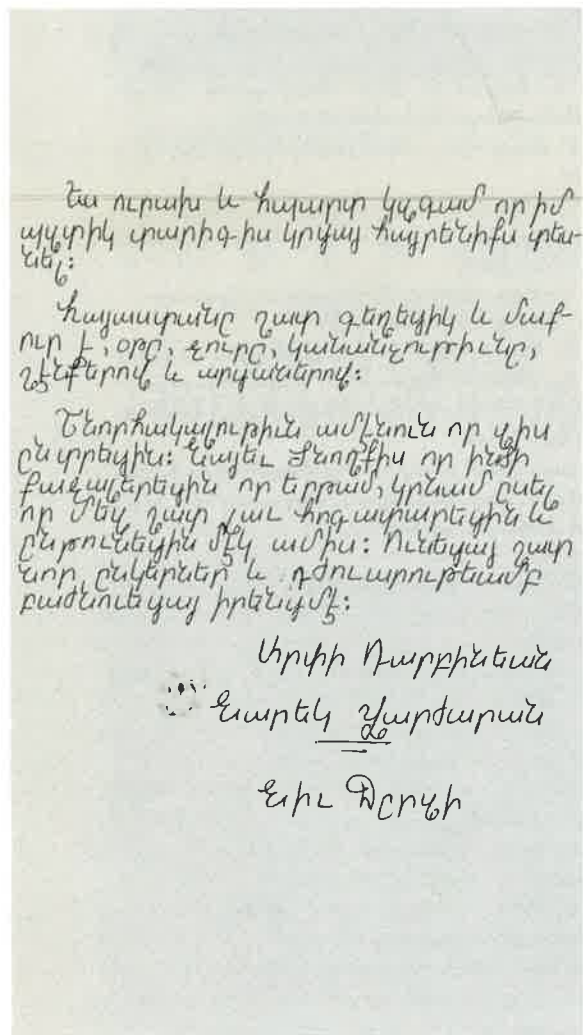 Ես ուրախ և հպարտ կզգամ որ իմ
պզտիկ տարիգիս կրցայ հայրենիքս տես-
նել։
Հայաստանը շատ գեղեցիկ և մաք-
ուր է, օրը, ջուրը, կանանչութիւնը,
շէնքերով և արվաններով։
Շնորհակալութիւն ամէնուն որ զիս
ընտրեցին։ Նայեւ ծնողքիս որ ինծի
քաջալերեցին որ երթամ, կրնամ ըսել
որ մեզ շատ լաւ հոգատարեցին և
ընթունեցին մէկ ամիս։ Ունեցայ շատ
նոր ընկերներ և դժուարութեամբ
բաժնուեցայ իրենցմէ։
Արփի Դարբինեան
Նարեկ Վարժարան
Նիւ Ճըրզի